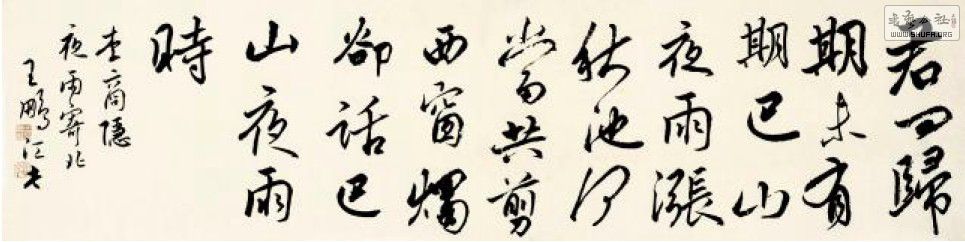 君問歸
期未有
期巴山
夜雨漲
秋池何
當共剪
西窗燭
卻話巴
山夜雨
時
李商隱
夜雨寄北
王鵬江書
WWW.SHUFA.ORG